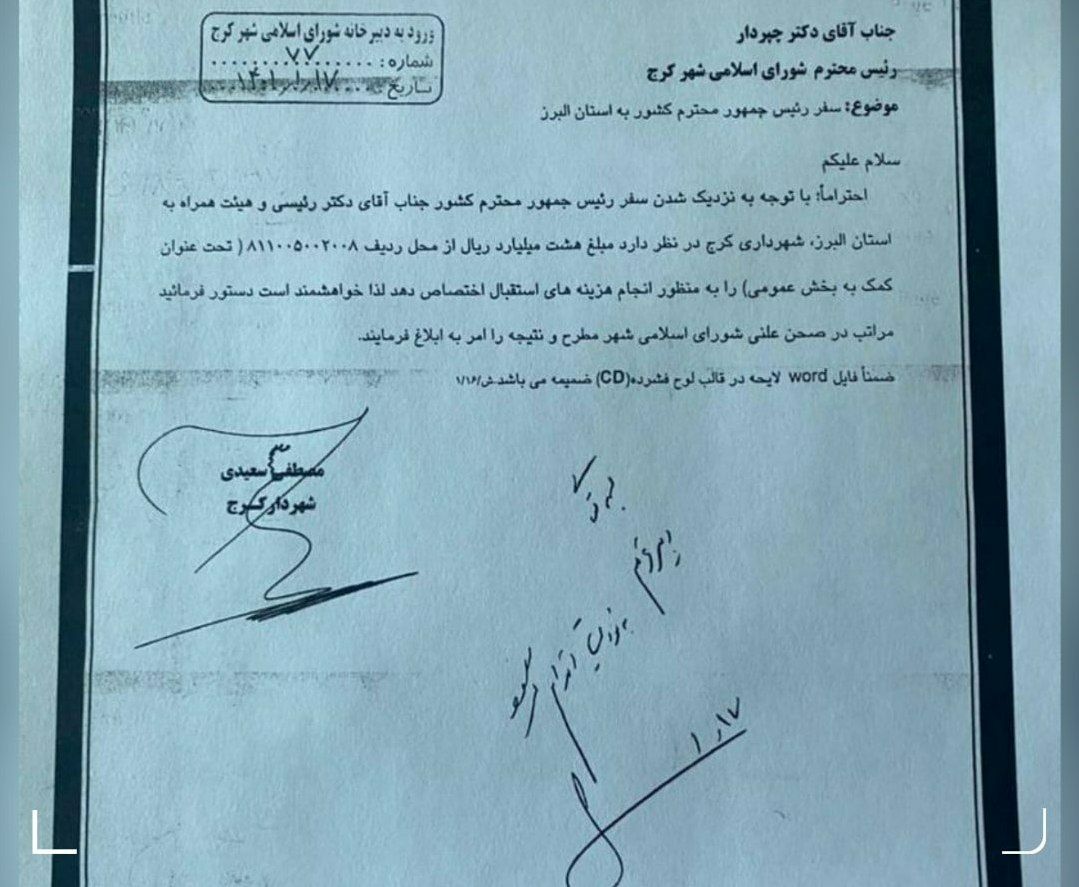 ورود به دبیرخانه شورای اسلامی شهر کرج
شماره: ۷۷
تاریخ ۱۴۰۱.۱.۱۷
جناب آقای دکتر چپردار
رئیس محترم شورای اسلامی شهر کرج
موضوع: سفر رئیس جمهور محترم کشور به استان البرز
سلام علیکم
احتراماً؛ با توجه به نزدیک شدن سفر رئیس جمهور محترم کشور جناب آقای دکتر رئیسی و هیئت همراه به
استان البرز، شهرداری کرج در نظر دارد مبلغ هشت میلیارد ریال از محل ردیف ۸۱۱۰۰۵۰۰۲۰۰۸ ( تحت عنوان
کمک به بخش عمومی) را به منظور انجام هزینه های استقبال اختصاص دهد لذا خواهشمند است دستور فرمائید
مراتب در صحن علنی شورای اسلامی شهر مطرح و نتیجه را امر به ابلاغ فرمایند.
ضمناً فایل word لایحه در قالب لوح فشرده(CD) ضمیمه می باشد.ش/۱/۱۶
مصطفی سعیدی
شهردار کرج
اقدام
۱٫۱۷